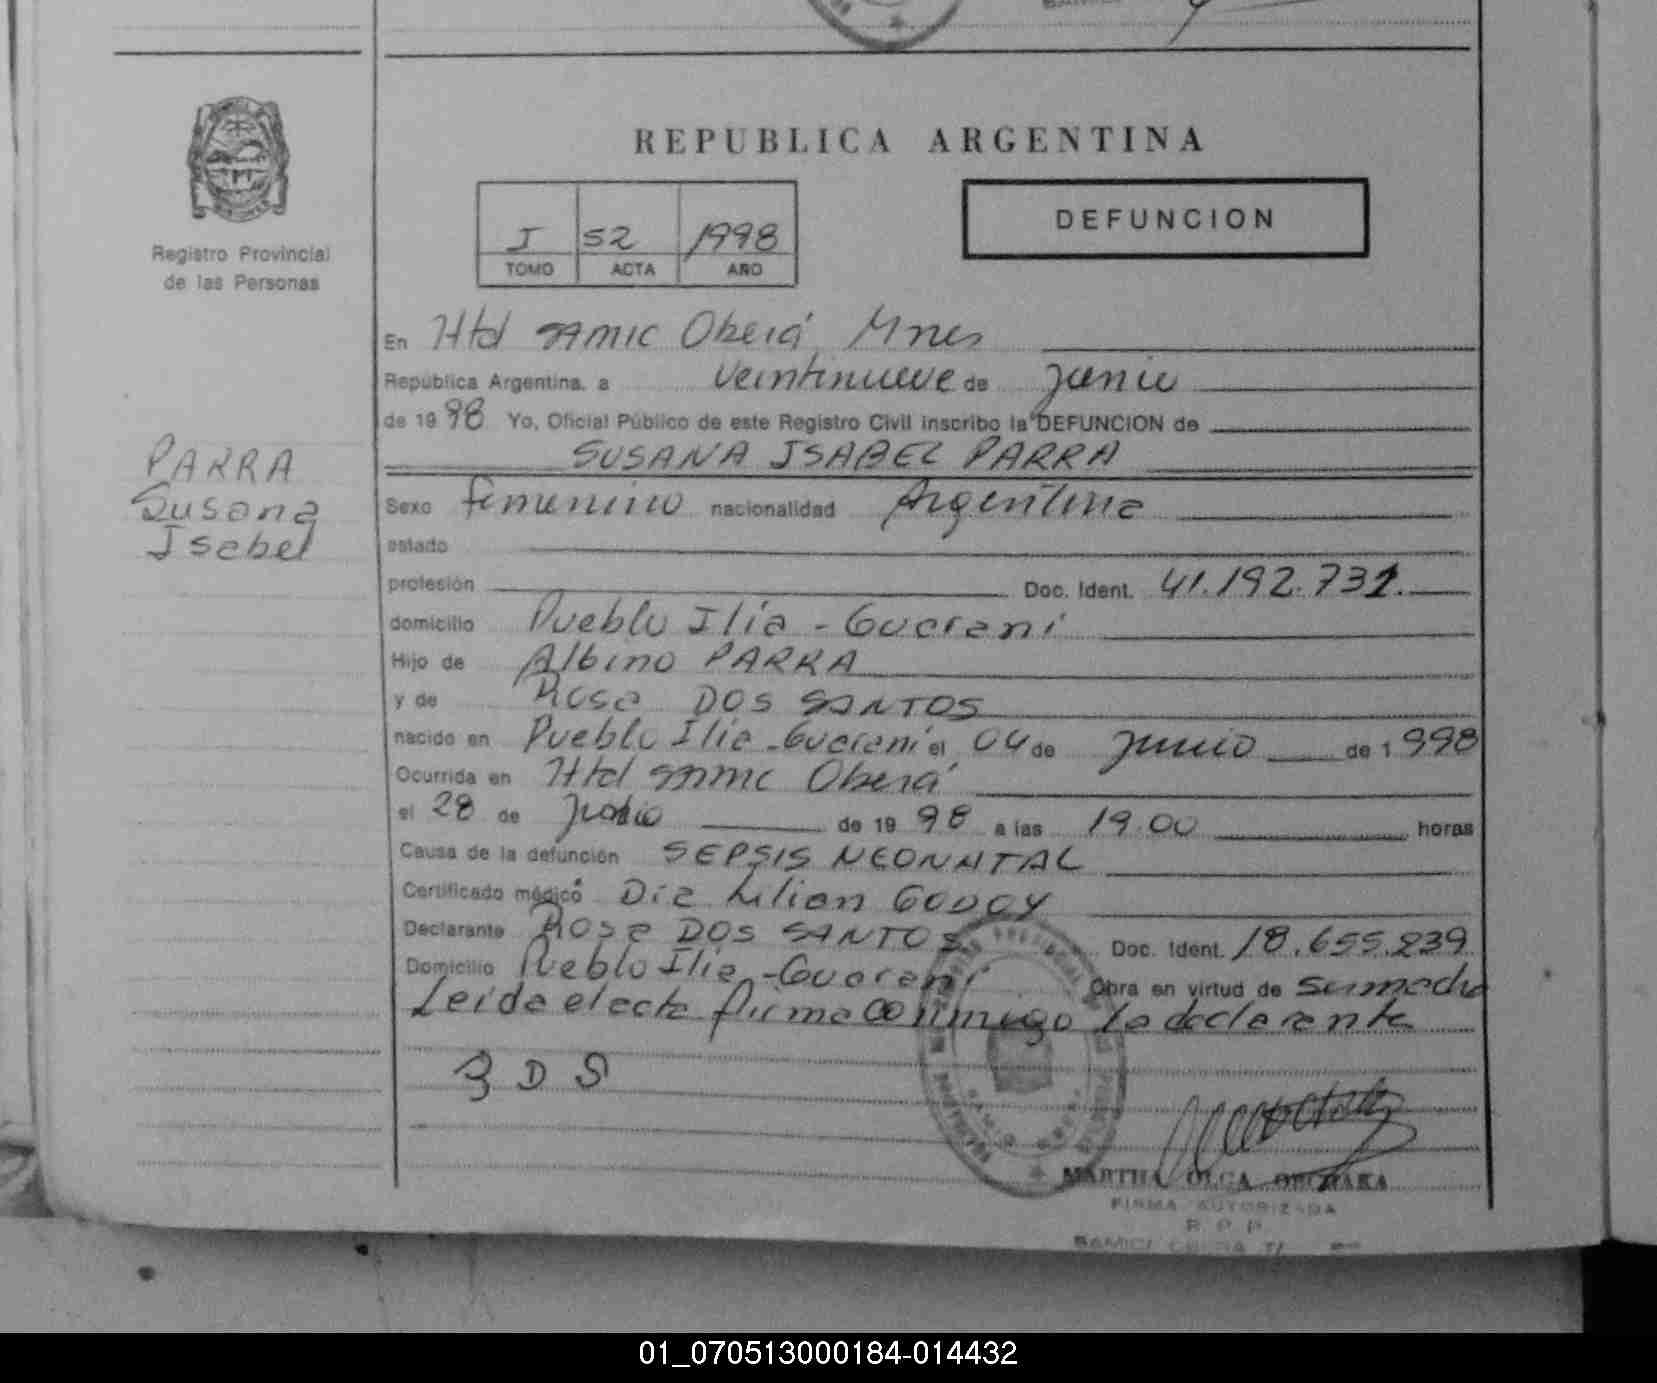 REPUBLICA ARGENTINA
DEFUNCION
I 52 1998
TOMO ACTA AÑO
Registro Provincial
de las Personas
PARRA
Susana
Isabel
En Htal SAMIC Oberá Mnes
República Argentina, a veintinueve de junio
de 1998 Yo, Oficial Público de este Registro Civil inscribo la DEFUNCION de
SUSANA ISABEL PARRA
Sexo femenino nacionalidad Argentina
estado
profesión Doc. Ident. 41.192.731.
domicilio Pueblo Illia - Guaraní
Hijo de Albino PARRA
y de Rosa DOS SANTOS
nacido en Pueblo Illia - Guaraní el 04 de junio de 1998
Ocurrida en Htal SAMIC Oberá
el 28 de junio de 1998 a las 19.00 horas
Causa de la defunción SEPSIS NEONATAL
Certificado médico Dra Lilian GODOY
Declarante Rosa DOS SANTOS Doc. Ident. 18.655.239
Domicilio Pueblo Illia - Guaraní Obra en virtud de ser madre
Leida el acta firma conmigo la declarante
R D S
MARTHA OLGA
FIRMA AUTORIZADA
R. P. P.
01_070513000184-014432